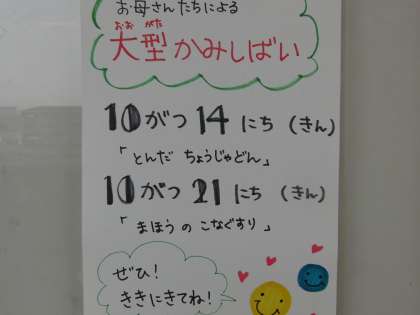 お母さんたちによる
おお がた
大型かみしばい
10がつ 14にち (きん)
「とんだ ちょうじゃどん」
10がつ 21にち (きん)
「まほうの こなぐすり」
ぜひ!
ききにきてね!